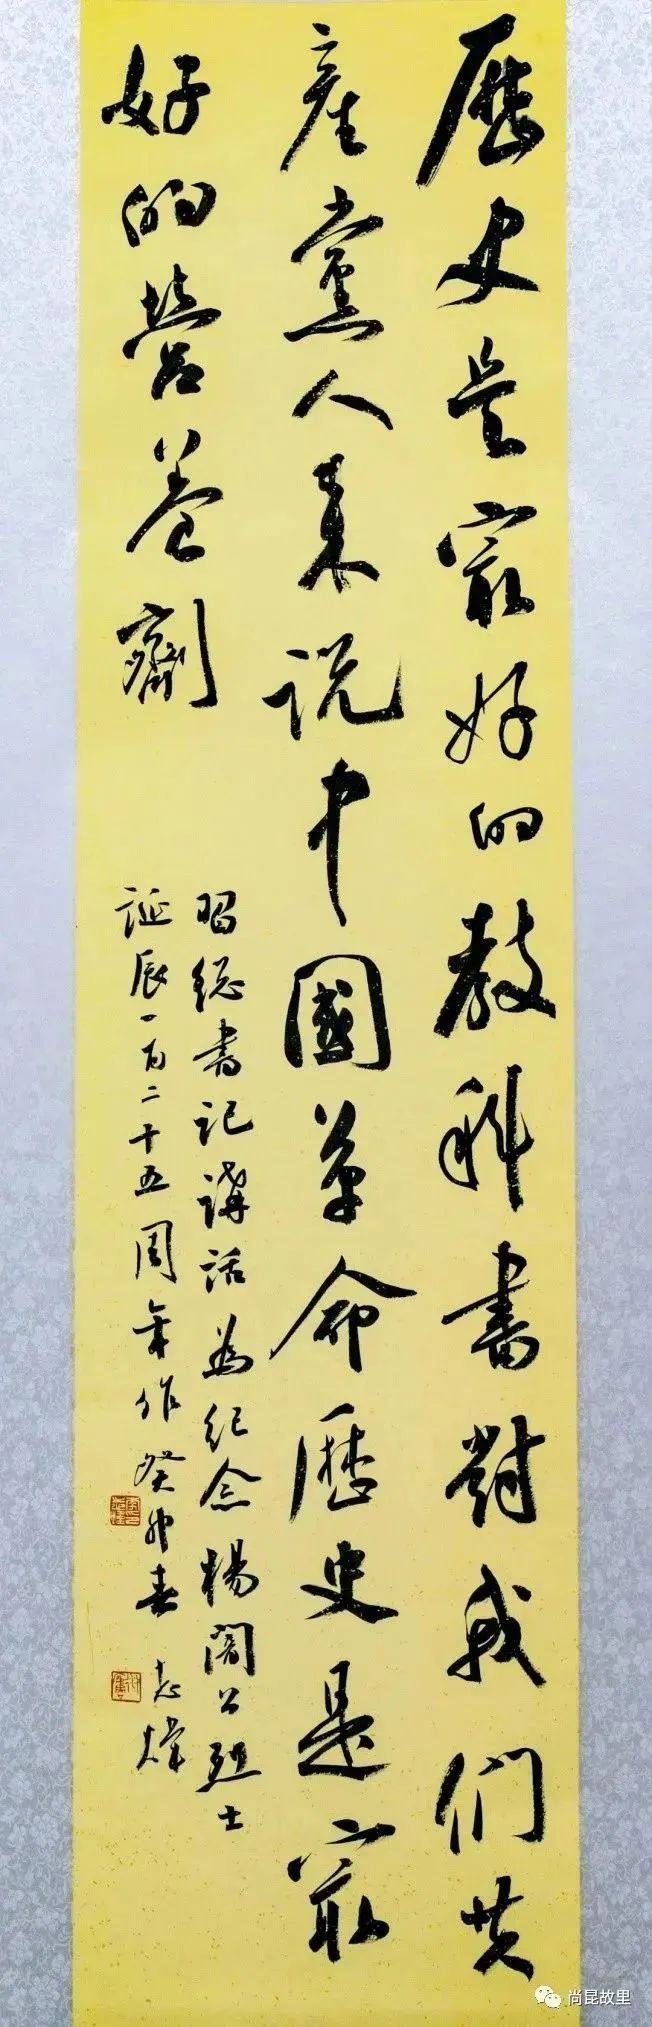 歷史是最好的教科書對我们共
產黨人来说中國革命歷史是最
好的營养劑
習総書记講話为纪念楊闇公烈士
誕辰一百二十五周年作癸卯春 志煒
尚昆故里